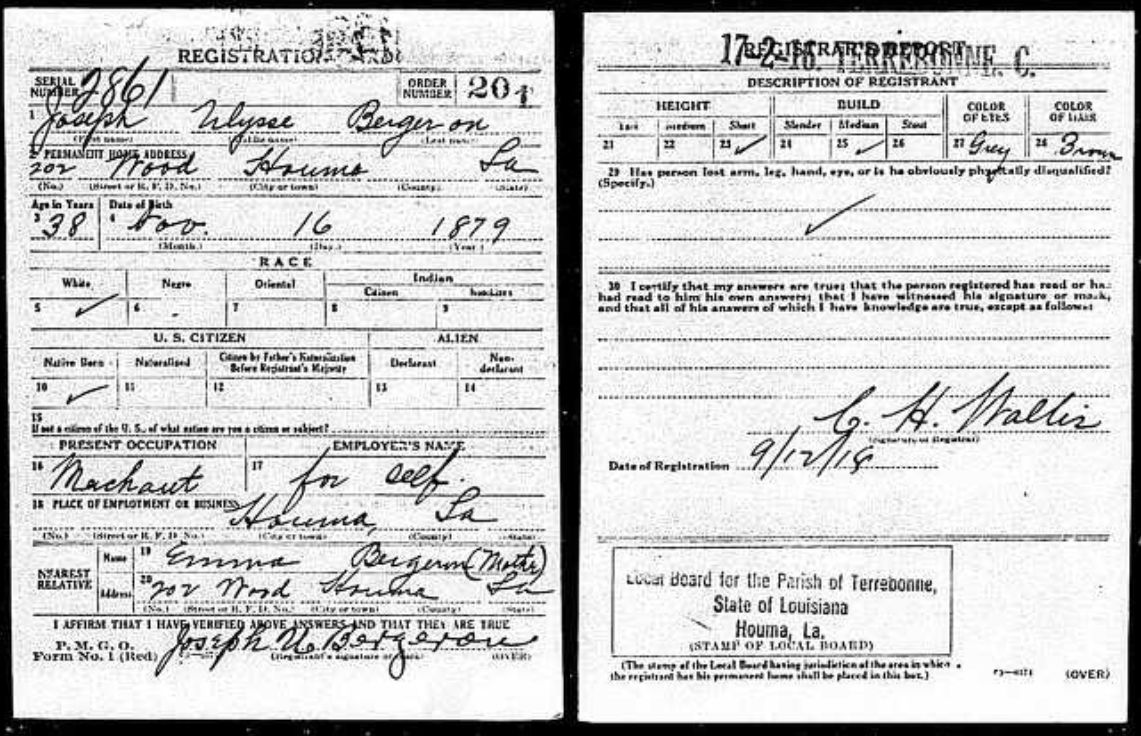 REGISTRATION CARD
SERIAL NUMBER 2861 ORDER NUMBER 201
1 Joseph Ulysse Bergeron
(First name) (Middle name) (Last name)
2 PERMANENT HOME ADDRESS
202 Wood Houma La
(No.) (Street or R. F. D. No.) (City or town) (County) (State)
Age in Years Date of Birth
3 38 4 Nov. 16 1879
(Month.) (Day.) (Year)
RACE
White Negro Oriental Indian
Citizen Noncitizen
5 ✓ 6 7 8 9
U. S. CITIZEN ALIEN
Native Born Naturalized Citizen by Father's Naturalization Before Registrant's Majority Declarant Non-declarant
10 ✓ 11 12 13 14
15
If not a citizen of the U. S., of what nation are you a citizen or subject?
PRESENT OCCUPATION EMPLOYER'S NAME
16 Machant 17 for self.
18 PLACE OF EMPLOYMENT OR BUSINESS
Houma, La
(No.) (Street or R. F. D. No.) (City or town) (County) (State)
NEAREST RELATIVE Name 19 Emma Bergeron (Mother)
Address 20 202 Wood Houma La
(No.) (Street or R. F. D. No.) (City or town) (County) (State)
I AFFIRM THAT I HAVE VERIFIED ABOVE ANSWERS AND THAT THEY ARE TRUE
P. M. G. O.
Form No. 1 (Red) Joseph U. Bergeron
(Registrant's signature or mark) (OVER)
17-2-16. TERREBONNE. C.
REGISTRAR'S REPORT
DESCRIPTION OF REGISTRANT
HEIGHT BUILD COLOR OF EYES COLOR OF HAIR
Tall Medium Short Slender Medium Stout
21 22 23 ✓ 24 25 ✓ 26 27 Grey 28 Brown
29 Has person lost arm, leg, hand, eye, or is he obviously physically disqualified?
(Specify.)
✓
30 I certify that my answers are true; that the person registered has read or has
had read to him his own answers; that I have witnessed his signature or mark,
and that all of his answers of which I have knowledge are true, except as follows:
C. H. Wallis
(Signature of Registrar)
Date of Registration 9/12/18
Local Board for the Parish of Terrebonne,
State of Louisiana
Houma, La.
(STAMP OF LOCAL BOARD)
(The stamp of the Local Board having jurisdiction of the area in which
the registrant has his permanent home shall be placed in this box.)
(OVER)